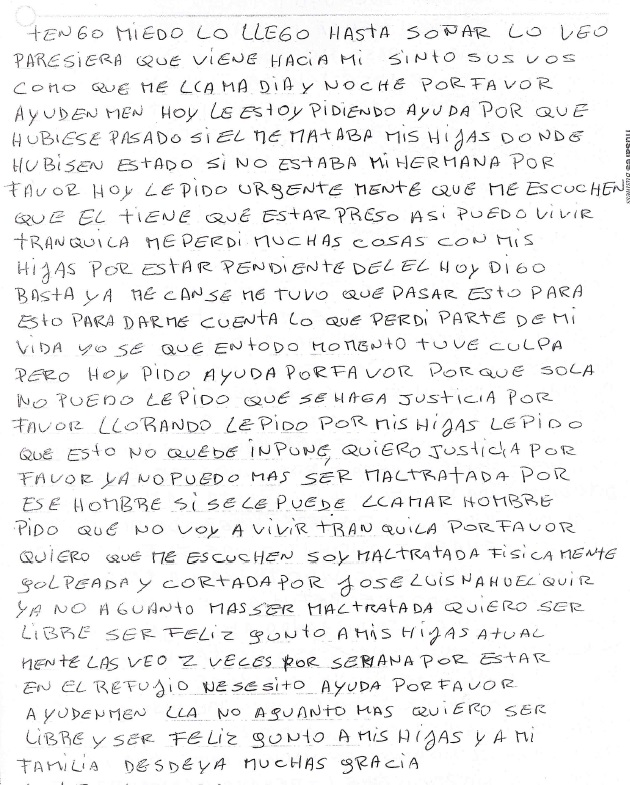 TENGO MIEDO LO LLEGO HASTA SOÑAR LO VEO
PARESIERA QUE VIENE HACIA MI SINTO SUS VOS
COMO QUE ME LLAMA DIA Y NOCHE POR FAVOR
AYUDENMEN HOY LE ESTOY PIDIENDO AYUDA POR QUE
HUBIESE PASADO SI EL ME MATABA MIS HIJAS DONDE
HUBISEN ESTADO SI NO ESTABA MI HERMANA POR
FAVOR HOY LE PIDO URGENTE MENTE QUE ME ESCUCHEN
QUE EL TIENE QUE ESTAR PRESO ASI PUEDO VIVIR
TRANQUILA ME PERDI MUCHAS COSAS CON MIS
HIJAS POR ESTAR PENDIENTE DEL EL HOY DIGO
BASTA YA ME CANSE ME TUVO QUE PASAR ESTO PARA
ESTO PARA DARME CUENTA LO QUE PERDI PARTE DE MI
VIDA YO SE QUE EN TODO MOMENTO TUVE CULPA
PERO HOY PIDO AYUDA POR FAVOR PORQUE SOLA
NO PUEDO LE PIDO QUE SE HAGA JUSTICIA POR
FAVOR LLORANDO LE PIDO POR MIS HIJAS LE PIDO
QUE ESTO NO QUEDE INPUNE, QUIERO JUSTICIA POR
FAVOR YA NO PUEDO MAS SER MALTRATADA POR
ESE HOMBRE SI SE LE PUEDE LLAMAR HOMBRE
PIDO QUE NO VOY A VIVIR TRANQUILA POR FAVOR
QUIERO QUE ME ESCUCHEN SOY MALTRATADA FISICAMENTE
GOLPEADA Y CORTADA POR JOSE LUIS NAHUELQUIR
YA NO AGUANTO MAS SER MALTRATADA QUIERO SER
LIBRE SER FELIZ GUNTO A MIS HIJAS ATUAL
MENTE LAS VEO 2 VECES POR SEMANA POR ESTAR
EN EL REFUJIO NESESITO AYUDA POR FAVOR
AYUDENMEN LLA NO AGUANTO MAS QUIERO SER
LIBRE Y SER FELIZ GUNTO A MIS HIJAS Y A MI
FAMILIA DESDE YA MUCHAS GRACIA